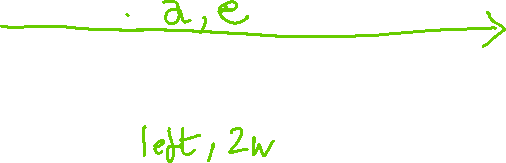 a, e
left, 2w